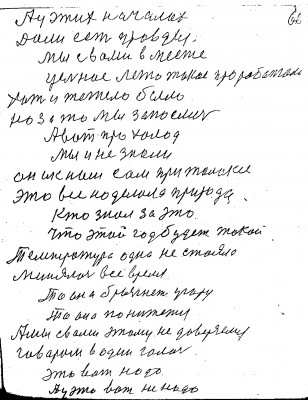 А у этих началах
Дали сет провдец
мы свами вместе
целное лето такое проработали
хоть и тежело было
но зато мы запаслис
А вот про холод
мы и не знали
он иснам сам притаскал
Это все наделала природа
Кто знал за это
Что этой год будет такой
Температура одна не стояла
Менялас всё время
То она брыкнет угору
То она понижет
А мы свами этому не доверяем
говорим водин голас
это вот надо
А у это вот не надо